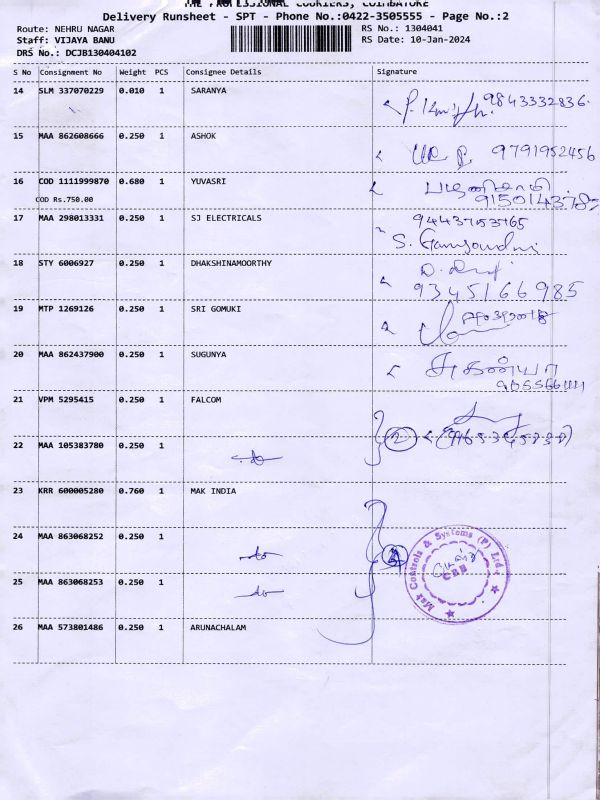 THE PROFESSIONAL COURIERS, COIMBATORE
Delivery Runsheet - SPT - Phone No.:0422-3505555 - Page No.:2
Route: NEHRU NAGAR RS No.: 1304041
Staff: VIJAYA BANU RS Date: 10-Jan-2024
DRS No.: DCJB130404102
S No Consignment No Weight PCS Consignee Details Signature
14 SLM 337070229 0.010 1 SARANYA 9843332836.
15 MAA 862608666 0.250 1 ASHOK 9791952456
16 COD 1111999870 0.680 1 YUVASRI
COD Rs.750.00
17 MAA 298013331 0.250 1 SJ ELECTRICALS
18 STY 6006927 0.250 1 DHAKSHINAMOORTHY
9345166985
19 MTP 1269126 0.250 1 SRI GOMUKI
20 MAA 862437900 0.250 1 SUGUNYA சுகன்யா
21 VPM 5295415 0.250 1 FALCOM
22 MAA 105383780 0.250 1 do 2
23 KRR 600005280 0.760 1 MAK INDIA
24 MAA 863068252 0.250 1 do
25 MAA 863068253 0.250 1 do
Mak Controls & Systems (P) Ltd.,
CBE
26 MAA 573801486 0.250 1 ARUNACHALAM